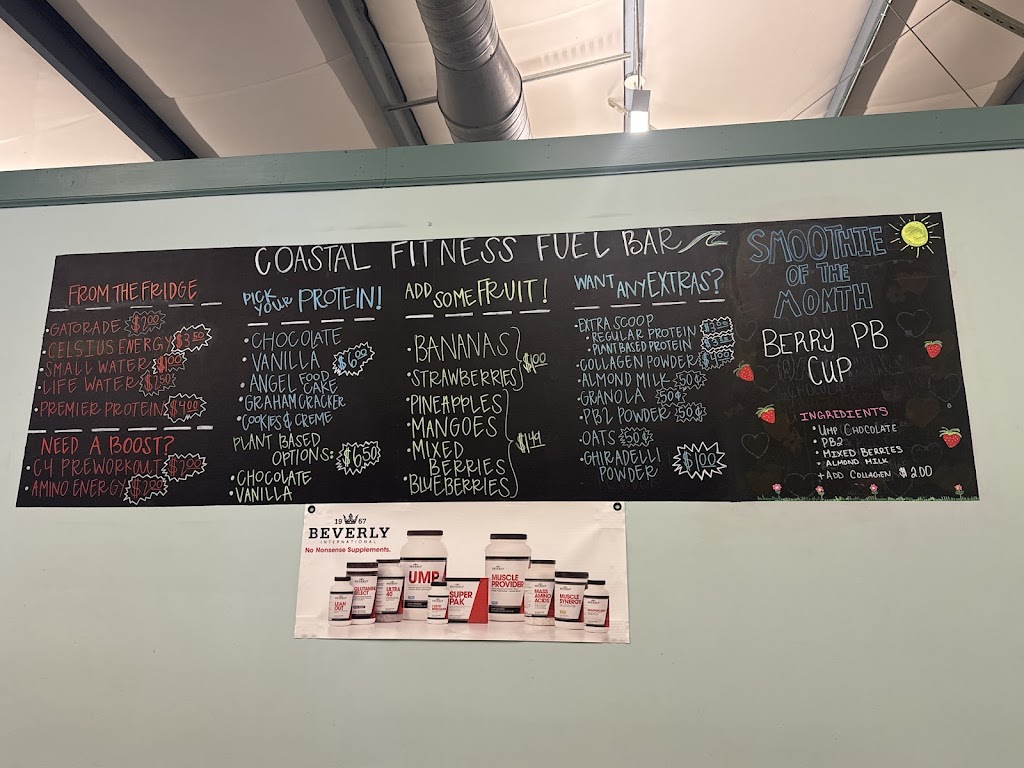 COASTAL FITNESS FUEL BAR
FROM THE FRIDGE
• GATORADE
• CELSIUS ENERGY $3.50
• SMALL WATER $1.00
• LIFE WATER $2.50
• PREMIER PROTEIN $4.00
NEED A BOOST?
• C4 PREWORKOUT $2.00
• AMINO ENERGY $2.00
PICK YOUR PROTEIN!
• CHOCOLATE
• VANILLA $6.00
• ANGEL FOOD
CAKE
• GRAHAM CRACKER
• COOKIES & CREME
PLANT BASED
OPTIONS: $6.50
• CHOCOLATE
• VANILLA
ADD SOME FRUIT!
• BANANAS
• STRAWBERRIES $1.00
• PINEAPPLES
• MANGOES
• MIXED
BERRIES
• BLUEBERRIES
WANT ANY EXTRAS?
• EXTRA SCOOP
• REGULAR PROTEIN
• PLANT BASED PROTEIN
• COLLAGEN POWDER
• ALMOND MILK 50¢
• GRANOLA 50¢
• PB2 POWDER 50¢
• OATS 50¢
• GHIRADELLI
POWDER $1.00
SMOOTHIE
OF THE
MONTH
BERRY PB
CUP
INGREDIENTS
• UMP CHOCOLATE
• PB2
• MIXED BERRIES
• ALMOND MILK
+ ADD COLLAGEN $2.00
19 67
BEVERLY
INTERNATIONAL
No Nonsense Supplements.
LEAN OUT
GLUTAMINE SELECT
ULTRA 40
UMP
SUPER PAK
MUSCLE PROVIDER
MASS AMINO ACIDS
MUSCLE SYNERGY